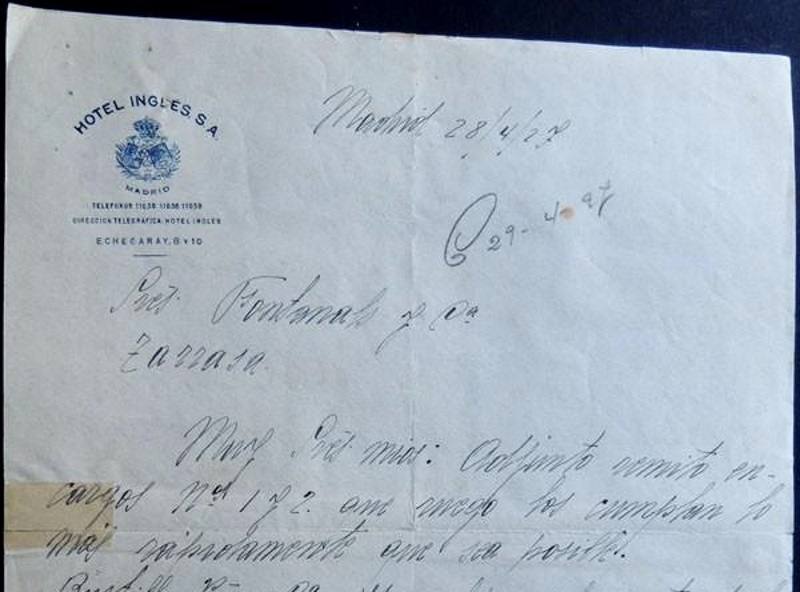 HOTEL INGLÉS, S.A.
MADRID
TELEFONOS 11636 11638 11639
DIRECCION TELEGRÁFICA: HOTEL INGLES
ECHEGARAY, 8 Y 10
Madrid 28/4/27
C 29-4-27
Srés. Fontanals y Cª
Zarrasa
Muy Srés. mios: Adjunto remito en-
cargos Nos 1 y 2. que ruego los cumplan lo
más rápidamente que sea posible.